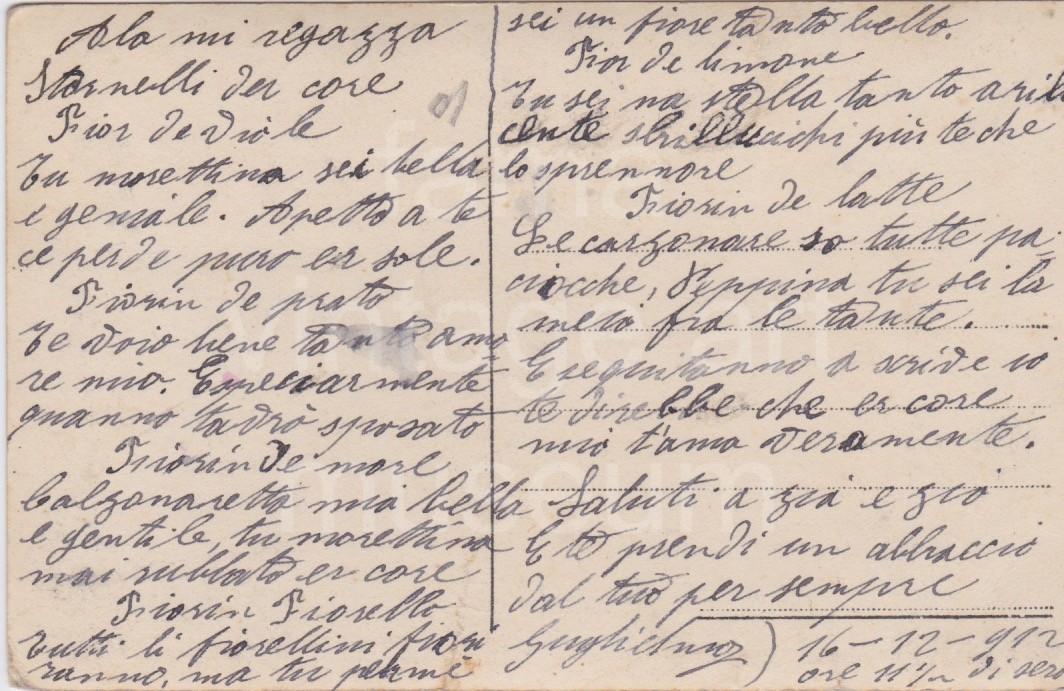 Ala mi regazza
Stornelli der core
Fior de viole
Tu morettina sei bella
e geniale. Apetto a te
ce perde puro er sole.
Fiorin de prato
Te voio bene tanto amo-
re mio. Speciarmente
quanno tadrò sposato
Fiorin de more
Calzonaretta mia bella
e gentile, tu morettina
mai rubbato er core
Fiorin Fiorello
Tutti li fiorellini fiori
ranno, ma tu perme
sei un fiore tanto bello.
Fior de limone
Tu sei na stella tanto
cente sbrilluuichi più te che
lo sprennore
Fiorin de latte
Le carzonare so tutte pa-
ciocche, Peppina tu sei la
meio fra le tante.
E seguitanno a scride io
te direbbe che er core
mio t'ama veramente.
Saluti a zia e zio
E te prendi un abbraccio
dal tuo per sempre
Guglielmo) 16-12-912
ore 11½ di sera
fama
vintage art
museum